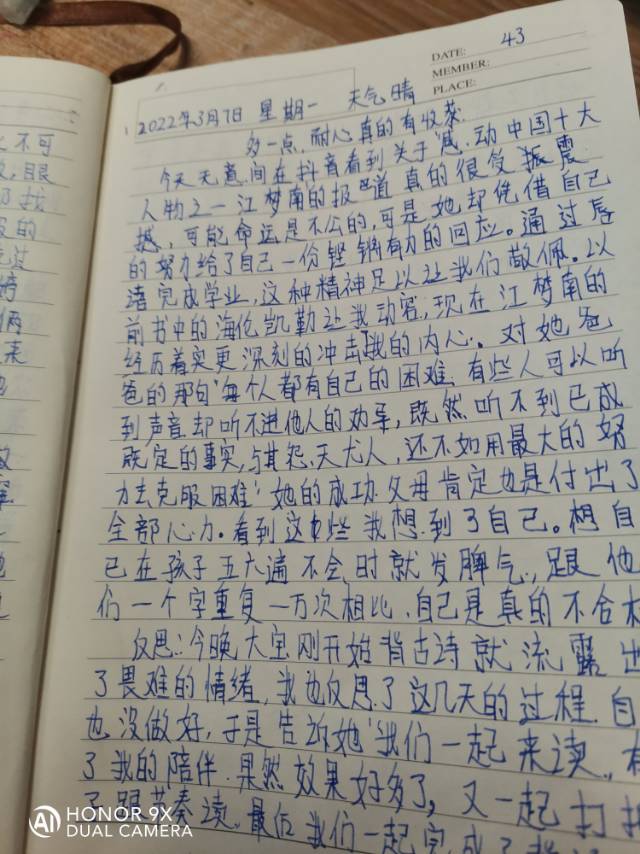 DATE: 43
MEMBER:
PLACE:
2022年3月7日 星期一 天气晴
多一点,耐心真的有收获.
今天无意间在抖音看到关于"感.动中国十大
人物之一江梦南的报"道 真的很受振震
撼,可能命运是不公的,可是她却凭借自己
的努力给了自己一份铿锵有力的回应。通过唇
语完成学业,这种精神足以让我们敬佩。以
前书中的海伦凯勒让我动容,现在江梦南的
经历着实更深刻的冲击我的内心。对她爸
爸的那句"每个人都有自己的困难,有些人可以听
到声音却听不进他人的劝导,既然听不到已成
既定的事实,与其怨.天尤人,还不如用最大的努
力去克服困难"她的成功.父母肯定也是付出了
全部心力。看到这些我想到了自己。想自
己在孩子五六遍不会时就发脾气,跟他
们一个字重复一万次相比,自己是真的不合格
反思:今晚大宝刚开始背古诗就流露出
了畏难的情绪,我也反思了这几天的过程.自
也没做好,于是告诉她"我们一起来读,有
了我的陪伴.果然效果好多了,又一起打拍
子跟节奏读。最后我们一起完成了
不可
眼
找
的
过
俩
来
HONOR 9X
AI DUAL CAMERA